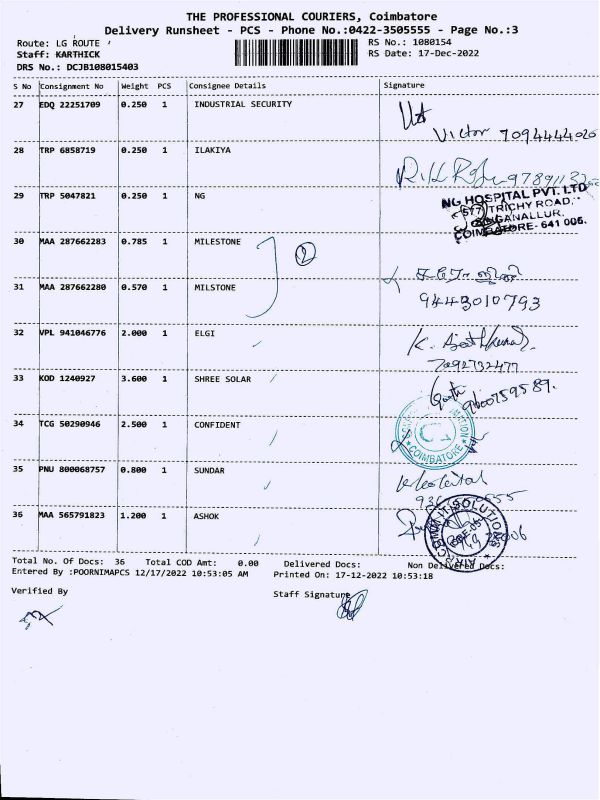 THE PROFESSIONAL COURIERS, Coimbatore
Delivery Runsheet - PCS - Phone No.:0422-3505555 - Page No.:3
Route: LG ROUTE
RS No.: 1080154
Staff: KARTHICK
RS Date: 17-Dec-2022
DRS No.: DCJB108015403
S No Consignment No Weight PCS Consignee Details Signature
27 EDQ 22251709 0.250 1 INDUSTRIAL SECURITY
Victor 7094444020
28 TRP 6858719 0.250 1 ILAKIYA
29 TRP 5047821 0.250 1 NG
NG HOSPITAL PVT. LTD
577, TRICHY ROAD,
SINGANALLUR,
COIMBATORE- 641 005.
30 MAA 287662283 0.785 1 MILESTONE
2
31 MAA 287662280 0.570 1 MILSTONE
9443010793
32 VPL 941046776 2.000 1 ELGI
7092732477
33 KOD 1240927 3.600 1 SHREE SOLAR
9600759589.
34 TCG 50290946 2.500 1 CONFIDENT
COIMBATORE
35 PNU 800068757 0.800 1 SUNDAR
36 MAA 565791823 1.200 1 ASHOK
Total No. Of Docs: 36 Total COD Amt: 0.00 Delivered Docs: Non Delivered Docs:
Entered By :POORNIMAPCS 12/17/2022 10:53:05 AM Printed On: 17-12-2022 10:53:18
Verified By
Staff Signature